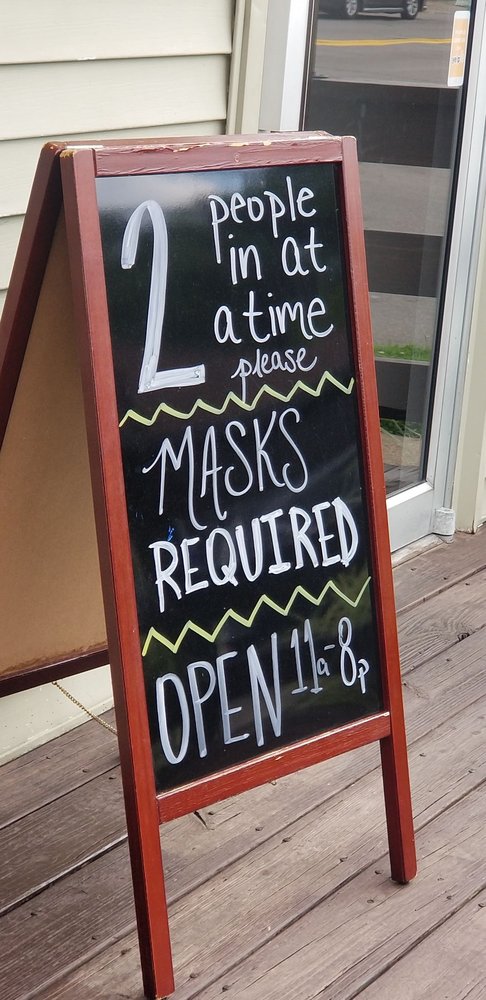 2 people
in at
a time
please
MASKS
REQUIRED
OPEN 11a-8p